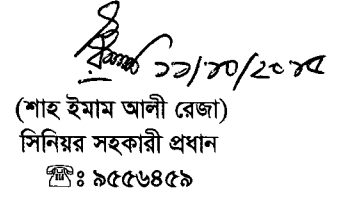 ১১/১০/২০১৫
(শাহ ইমাম আলী রেজা)
সিনিয়র সহকারী প্রধান
☎: ৯৫৫৬৪৫৯